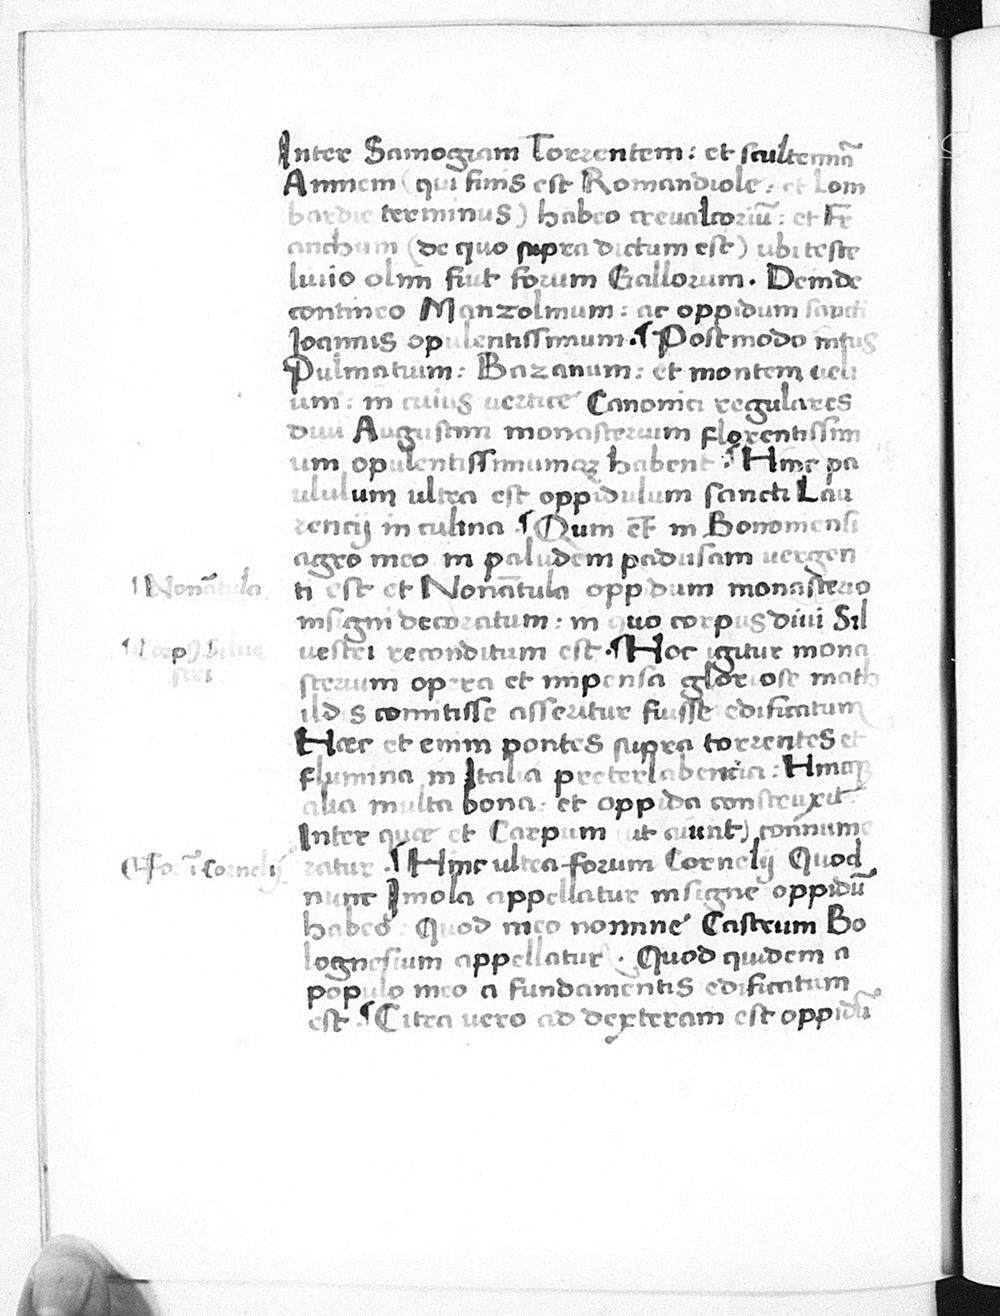 Inter Samogiam Torrentem: et scultennā
Amnem (qui finis est Romandiole: et Lom
bardie terminus) habeo crevalcoriū: et Fr
anchum (de quo supra dictum est) ubi teste
liuio olim fuit forum Gallorum. Deinde
contineo Manzolinum: ac oppidum sancti
Joannis opulentissimum. ¶ Post modo intus
Pulmatuim: Bazanum: et montem ueli
um: in cuius uertice Canonici regulares
diui Augustini monasterium florentissim
um opulentissimumqꝫ habent ¶ Hinc pa
ululum ultra est oppidulum sancti Lau
rencij in culina ¶ Qum et̄ in Bononiensi
agro meo in paludem padusam uergen
¶ Nonātula
ti est et Nonātula oppidum monasterio
insigni decoratum: in quo corpus diui Sil
¶ Corpꝯ Silue
stri
uestri reconditum est. ¶ Hoc igitur mona
sterium opera et impensa gloriose math
ildis comitisse asseritur fuisse edificatum
Haec et enim pontes supra torrentes et
flumina in Italia preterlabencia: Hincqꝫ
alia multa bona: et oppida construxit
Inter quae et Carpum (ut aiunt) connume
¶ Forū Cornelij
ratur. ¶ Hinc ultra forum Cornelij Quod
nunc Imola appellatur insigne oppidū
habeo. Quod meo nomine Castrum Bo
lognesium appellatur. Quod quidem a
populo meo a fundamentis edificatum
est. ¶ Citra uero ad dexteram est oppidū